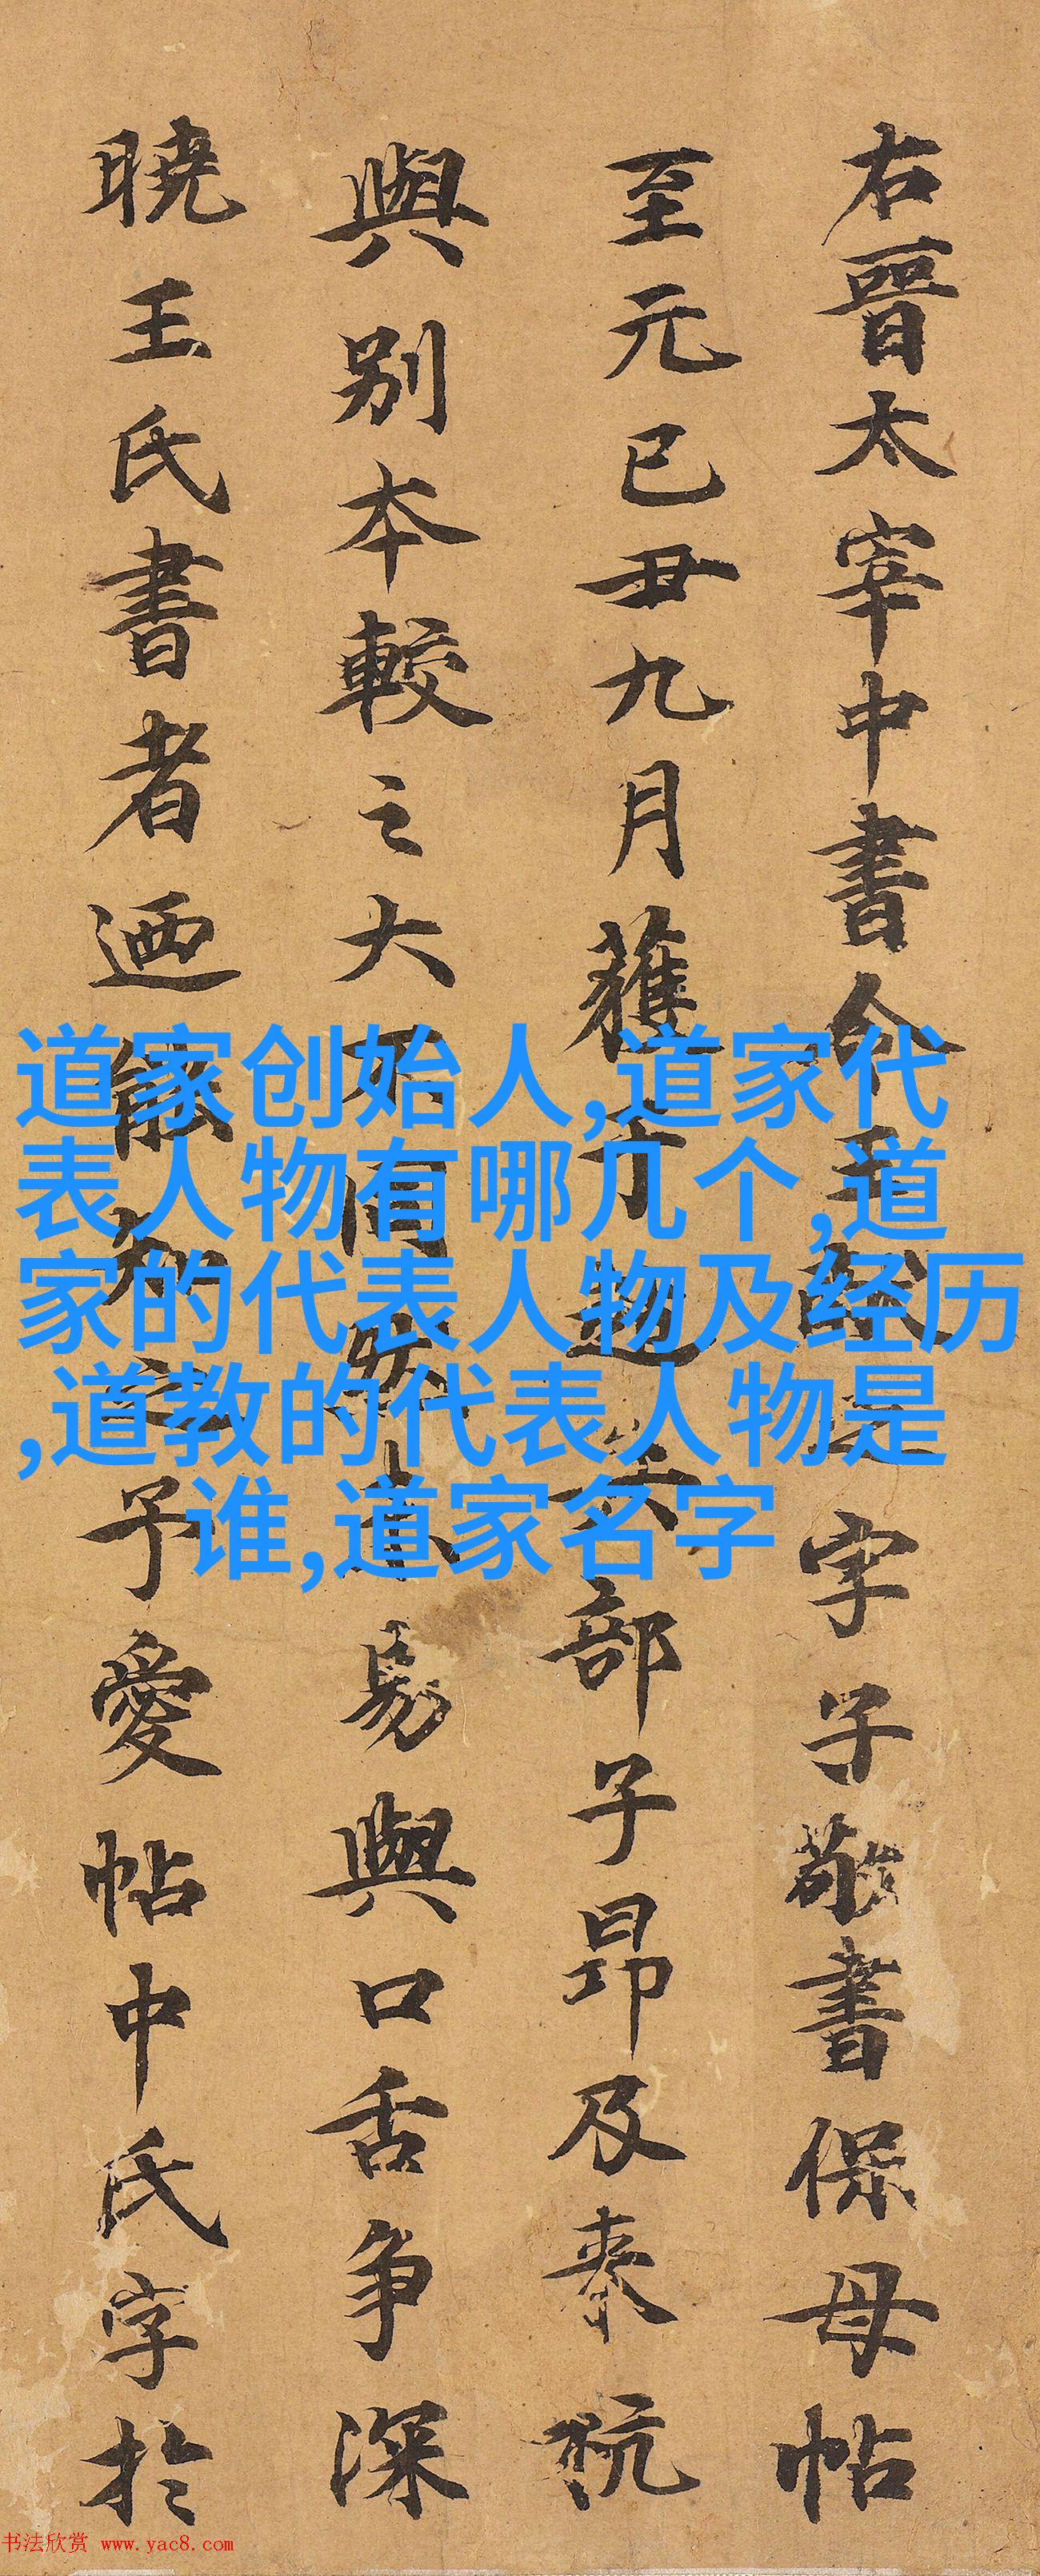 右晉太宰中書令王獻之字子敬書保母帖
至元已丑九月獲于趙兵部子昂及來杭
與別本較之大不同 未易與口舌争深
曉王氏書者迺能知之予愛帖中氏字於
道家创始人,道家代
表人物有哪几个,道
家的代表人物及经历
,道教的代表人物是
谁,道家名字
书法欣赏 www.yac8.com